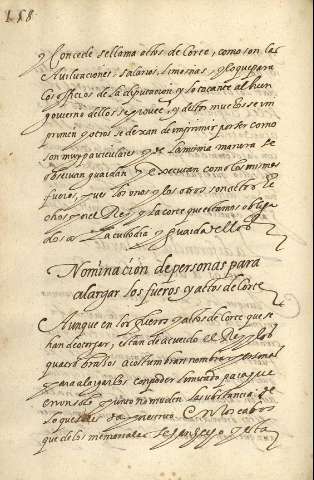 158
y Concede se llama actos de Corte, como son las
salarios, limosnas, y lo que para
los officios de la diputacion y lo tocante al buen
govierno dellos se provee, y destos muchos se im
primen y otros se dexan de imprimir por ser como
son muy particulares y de la misma manera se
observan guardan y executan como los mismos
fueros, pues los unos y los otros son hechos
y el Rey y la corte quedamos obliga
dos a la custodia y guarda dellos
Nominacion de personas para
alargar los fueros y actos de Corte
Aunque en los fueros y actos de Corte que se
han de otorgar, estan de acuerdo el Rey y los
quatro braços acostumbran nombrar personas
para alargarlos con poder limitado para que
en un solo punto no muden la substancia de
lo que se les da por escrito
que de los memoriales